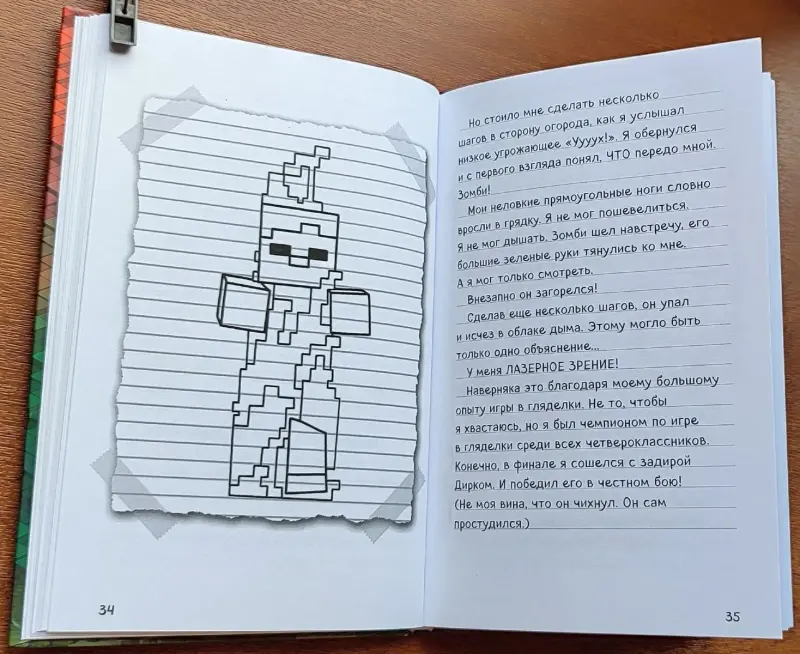 34
Но стоило мне сделать несколько
шагов в сторону огорода, как я услышал
низкое угрожающее «Уууух!». Я обернулся
и с первого взгляда понял, ЧТО передо мной.
Зомби!
Мои неловкие прямоугольные ноги словно
вросли в грядку. Я не мог пошевелиться.
Я не мог дышать. Зомби шел навстречу, его
большие зеленые руки тянулись ко мне.
А я мог только смотреть.
Внезапно он загорелся!
Сделав еще несколько шагов, он упал
и исчез в облаке дыма. Этому могло быть
только одно объяснение...
У меня ЛАЗЕРНОЕ ЗРЕНИЕ!
Наверняка это благодаря моему большому
опыту игры в гляделки. Не то, чтобы
я хвастаюсь, но я был чемпионом по игре
в гляделки среди всех четвероклассников.
Конечно, в финале я сошелся с задирой
Дирком. И победил его в честном бою!
(Не моя вина, что он чихнул. Он сам
простудился.)
35